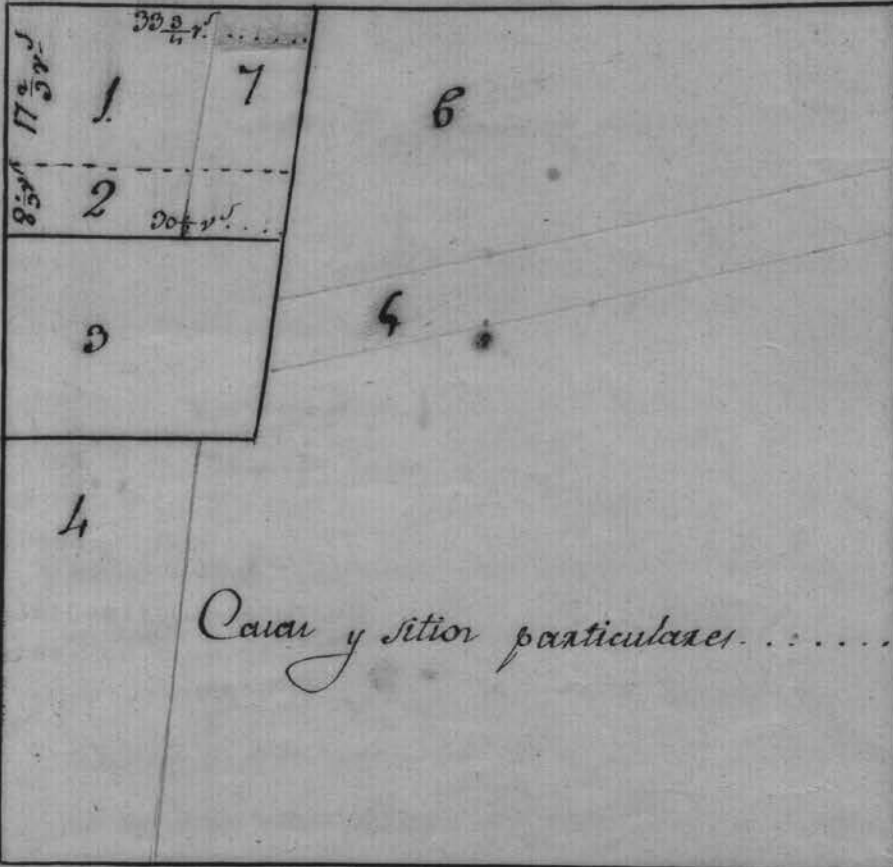 33 3/4 vs. ......
17 2/3 vs
1.
7
6
8 1/3 vs
2
30 1/2 vs. ....
3
5
4
Casas y sitios particulares. ......